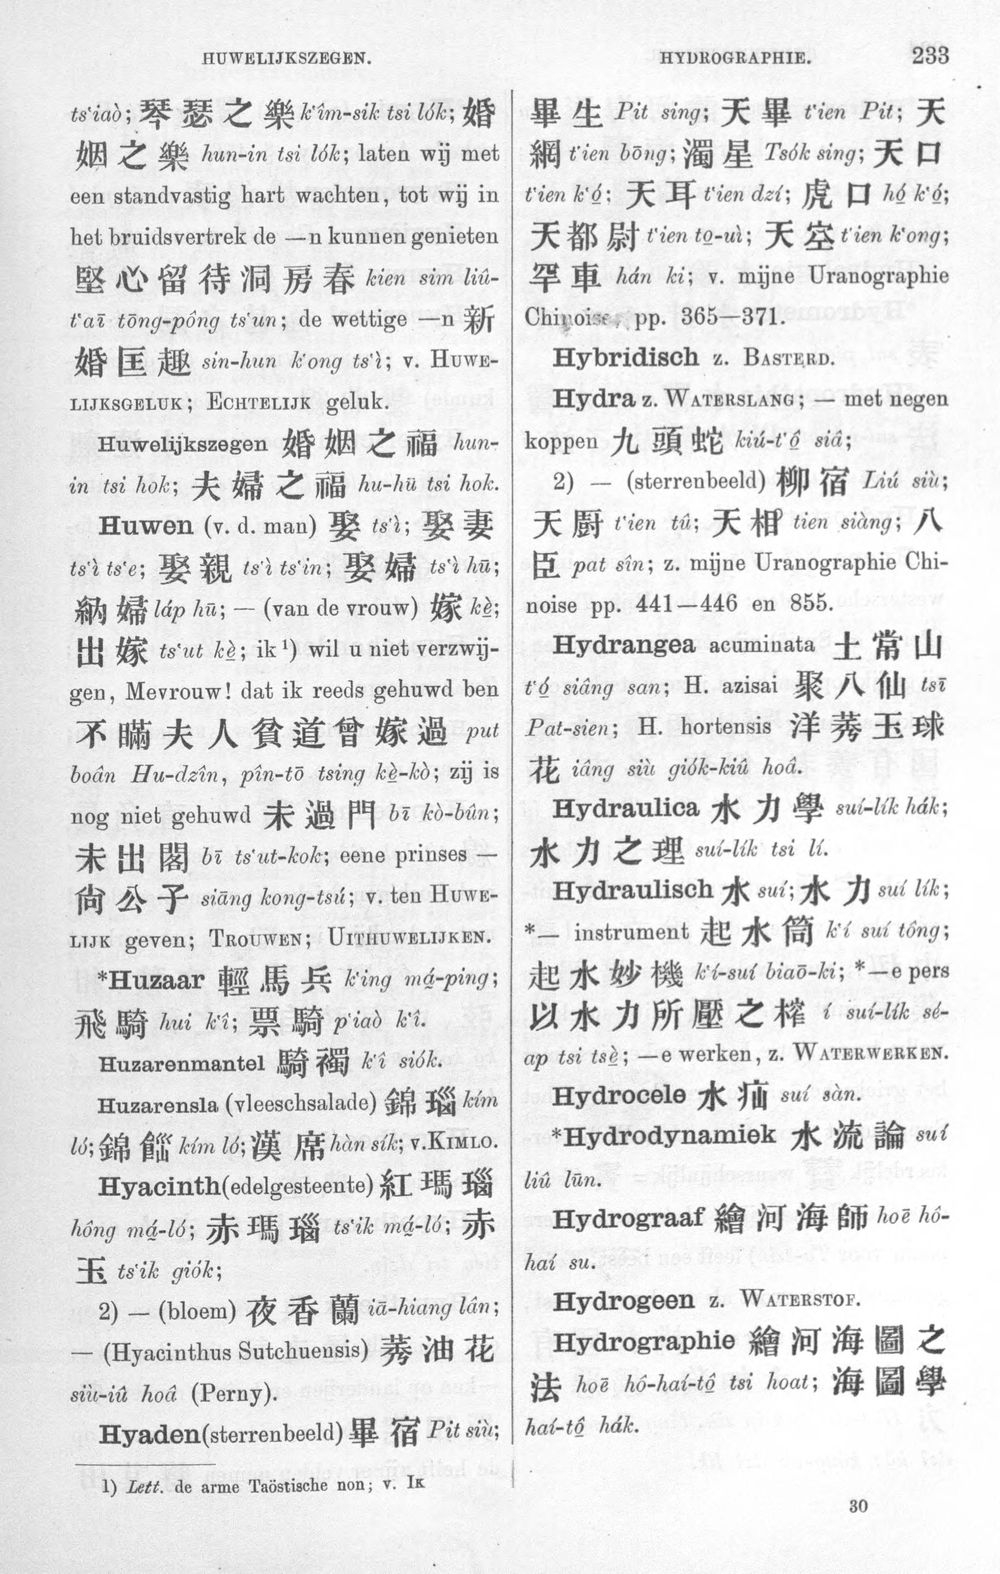 HUWELIJKSZEGEN.
HYDROGRAPHIE.
233
ts‘iaò; 琴瑟之樂 k‘îm-sik tsi lók; 婚
姻之樂 hun-in tsi lók; laten wij met
een standvastig hart wachten, tot wij in
het bruidsvertrek de —n kunnen genieten
堅心留待洞房春 kien sim liû-
t‘aī tōng-pông ts‘un; de wettige —n 新
婚匡趣 sin-hun k‘ong ts‘ì; v. HUWE-
LIJKSGELUK; ECHTELIJK geluk.
Huwelijkszegen 婚姻之福 hun-
in tsi hok; 夫婦之福 hu-hū tsi hok.
Huwen (v. d. man) 娶 ts‘ì; 娶妻
ts‘ì ts‘e; 娶親 ts‘ì ts‘in; 娶婦 ts‘ì hū;
納婦 láp hū; — (van de vrouw) 嫁 kè̤;
出嫁 ts‘ut kè̤; ik ¹) wil u niet verzwij-
gen, Mevrouw! dat ik reeds gehuwd ben
不瞞夫人貧道曾嫁過 put
boân Hu-dzîn, pîn-tō tsing kè̤-kò; zij is
nog niet gehuwd 未過門 bī kò-bûn;
未出閣 bī ts‘ut-kok; eene prinses —
尙公子 siāng kong-tsú; v. ten HUWE-
LIJK geven; TROUWEN; UITHUWELIJKEN.
*Huzaar 輕馬兵 k‘ing má̤-ping;
飛騎 hui k‘î; 票騎 p‘iaò k‘î.
Huzarenmantel 騎襡 k‘î siók.
Huzarensla (vleeschsalade) 錦瑙 kím
ló; 錦 kím ló; 漢席 hàn sík; v. KIMLO.
Hyacinth (edelgesteente) 紅瑪瑙
hông má̤-ló; 赤瑪瑙 ts‘ik má̤-ló; 赤
玉 ts‘ik giók;
2) — (bloem) 夜香蘭 iā-hiang lân;
— (Hyacinthus Sutchuensis) 莠油花
siù-iû hoâ (Perny).
Hyaden (sterrenbeeld) 畢宿 Pit siù;
1) Lett. de arme Taöstische non; v. IK
畢生 Pit sing; 天畢 t‘ien Pit; 天
網 t‘ien bōng; 濁星 Tsók sing; 天口
t‘ien k‘ó̤; 天耳 t‘ien dzí; 虎口 hó̤ k‘ó̤;
天都尉 t‘ien to̤-uì; 天空 t‘ien k‘ong;
罕車 hán ki; v. mijne Uranographie
Chinoise, pp. 365—371.
Hybridisch z. BASTERD.
Hydra z. WATERSLANG; — met negen
koppen 九頭蛇 kiú-t‘ô̤ siâ;
2) — (sterrenbeeld) 柳宿 Liú siù;
天厨 t‘ien tû; 天相 tien siàng; 八
臣 pat sîn; z. mijne Uranographie Chi-
noise pp. 441—446 en 855.
Hydrangea acuminata 土常山
t‘ó̤ siâng san; H. azisai 聚八仙 tsī
Pat-sien; H. hortensis 洋莠玉球
花 iâng siù giók-kiû hoâ.
Hydraulica 水力學 suí-lík hák;
水力之理 suí-lík tsi lí.
Hydraulisch 水 suí; 水力 suí lík;
*— instrument 起水筒 k‘í suí tông;
起水妙機 k‘í-suí biaō-ki; *—e pers
以水力所壓之榨 í suí-lík sé-
ap tsi tsè̤; —e werken, z. WATERWERKEN.
Hydrocele 水疝 suí sàn.
*Hydrodynamiek 水流論 suí
liû lūn.
Hydrograaf 繪河海師 hoē hô-
haí su.
Hydrogeen z. WATERSTOF.
Hydrographie 繪河海圖之
法 hoē hô-haí-tô̤ tsi hoat; 海圖學
haí-tô̤ hák.
30